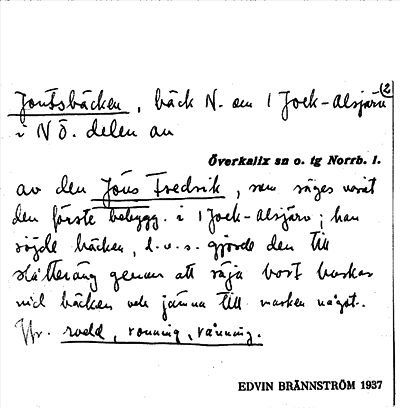 (2
Jonssbäcken, bäck N. om 1 Jock-alsjärv
i NÖ. delen av
Överkalix sn o. tg Norrb. l.
av den Jöns Fredrik, som säges varit
den förste bebygg. i 1 Jock-alsjärv; han
röjde bäcken, d.v.s. gjorde den till
slåtteräng genom att röja bort buskar
vid bäcken och jämna till marken något.
Jfr. rodd, ronning, ränning.
EDVIN BRÄNNSTRÖM 1937